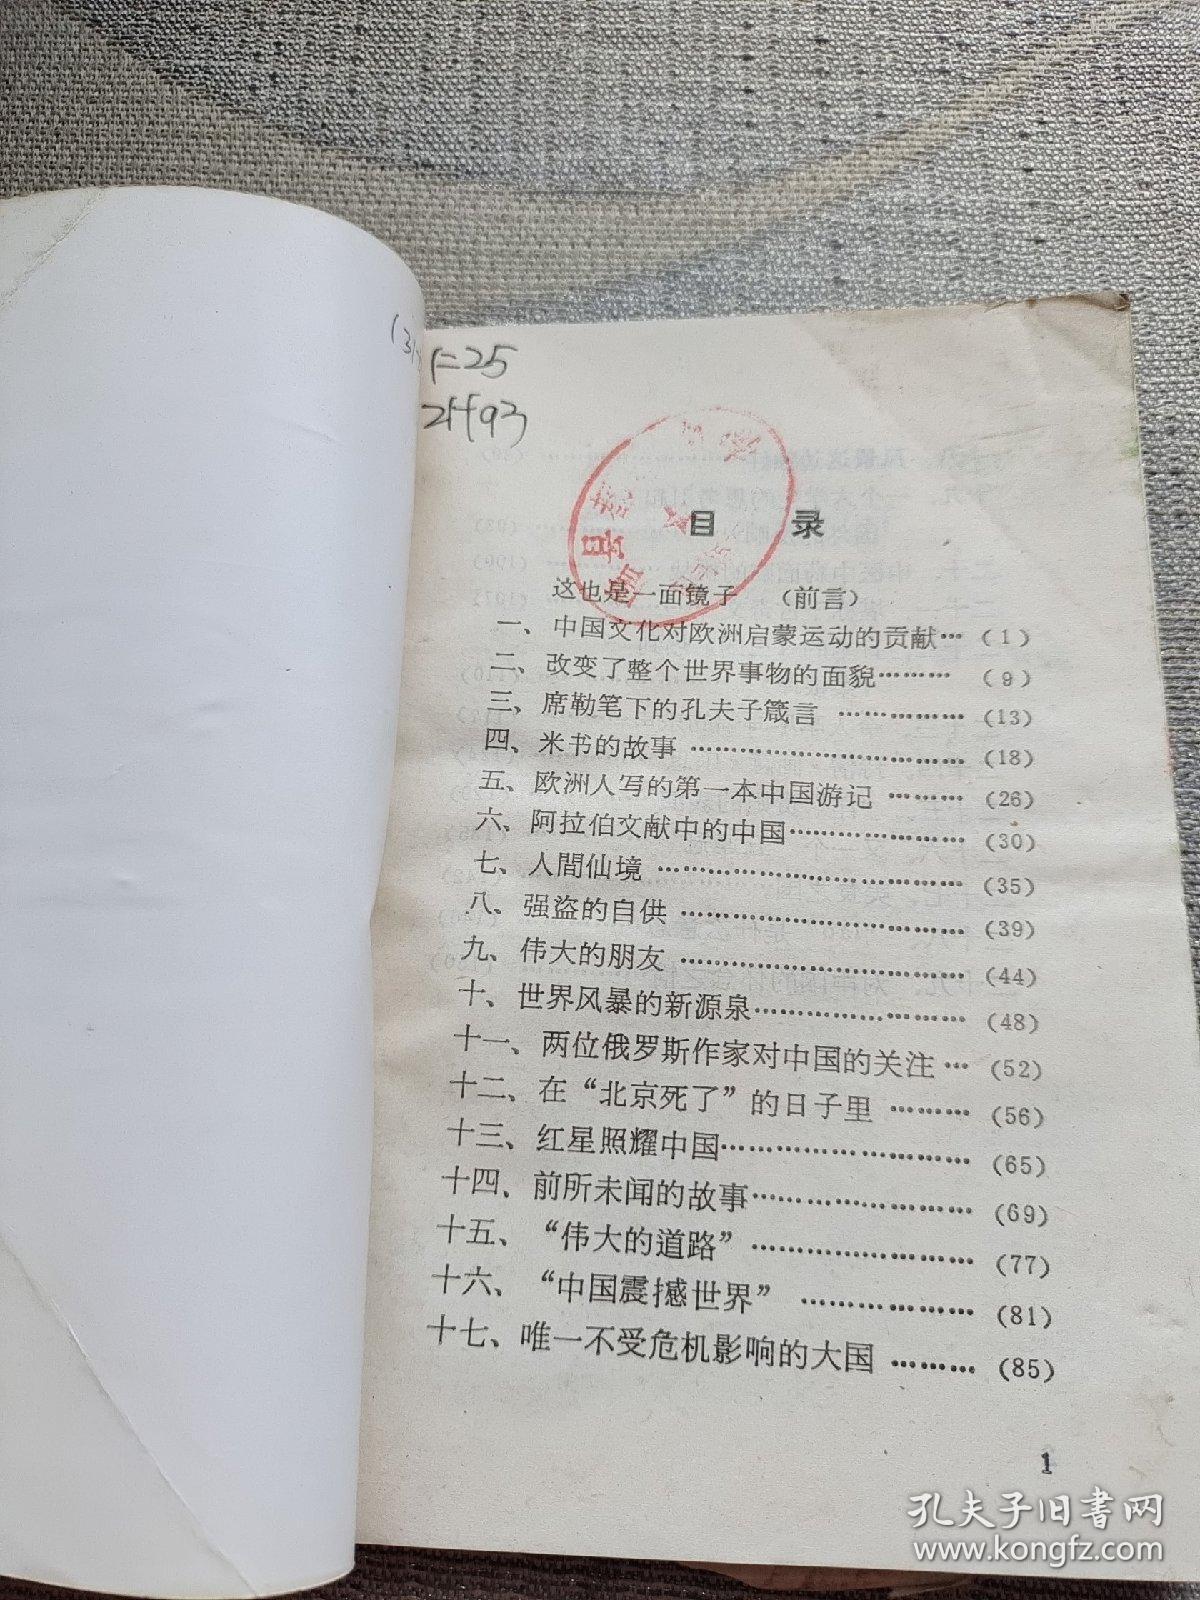 =25
目 录
这也是一面镜子 （前言）
一、中国文化对欧洲启蒙运动的贡献…（1）
二、改变了整个世界事物的面貌………（9）
三、席勒笔下的孔夫子箴言……………（13）
四、米书的故事…………………………（18）
五、欧洲人写的第一本中国游记………（26）
六、阿拉伯文献中的中国………………（30）
七、人間仙境……………………………（35）
八、强盗的自供…………………………（39）
九、伟大的朋友…………………………（44）
十、世界风暴的新源泉…………………（48）
十一、两位俄罗斯作家对中国的关注…（52）
十二、在“北京死了”的日子里………（56）
十三、红星照耀中国……………………（65）
十四、前所未闻的故事…………………（69）
十五、“伟大的道路”…………………（77）
十六、“中国震撼世界”………………（81）
十七、唯一不受危机影响的大国………（85）
1
孔夫子旧书网
www.kongfz.com